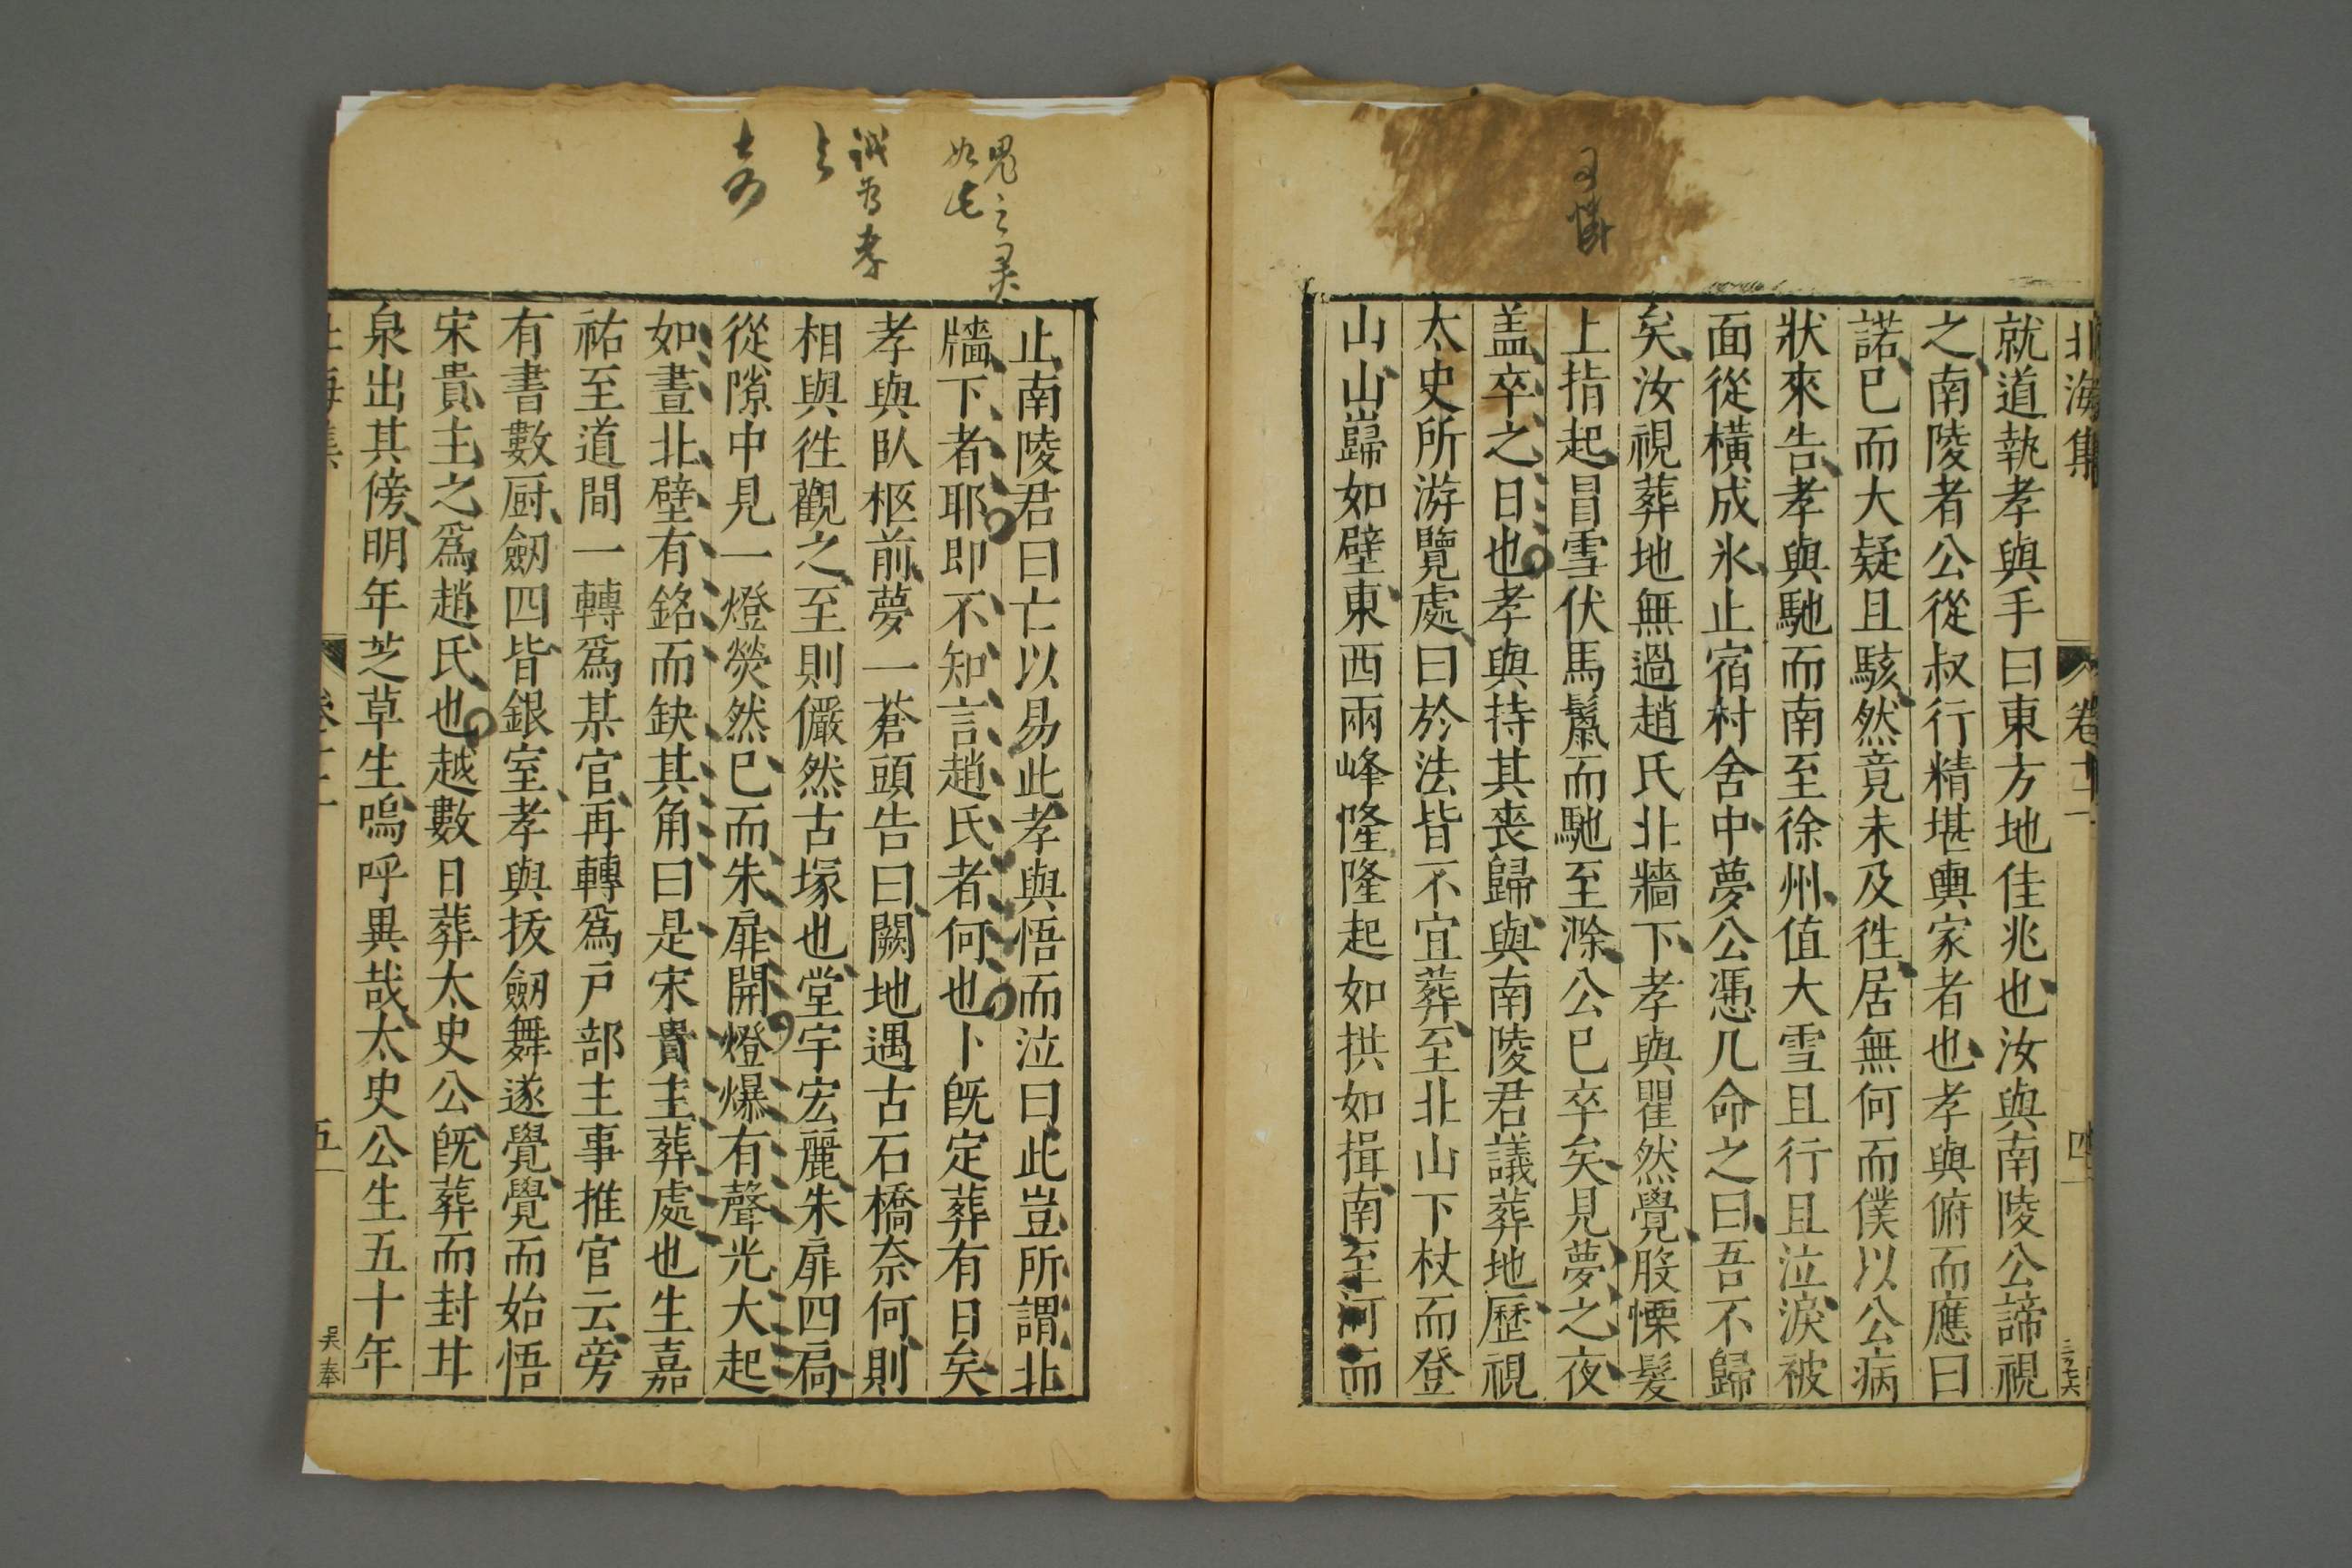 北海集
卷十二
四
就道執孝與手曰東方地佳兆也汝與南陵公諦視
之南陵者公從叔行精堪輿家者也孝與俯而應曰
諾已而大疑且駭然竟未及徃居無何而僕以公病
狀來告孝與馳而南至徐州值大雪且行且泣淚被
面從橫成氷止宿村舍中夢公憑几命之曰吾不歸
矣汝視葬地無過趙氏北牆下孝與瞿然覺股慄髮
上指起冒雪伏馬鬣而馳至滁公已卒矣見夢之夜
盖卒之日也孝與持其喪歸與南陵君議葬地歷視
太史所游覽處曰於法皆不宜葬至北山下杖而登
山山巋如壁東西兩峰隆隆起如拱如揖南至河而
鬼之灵
如此
誠為孝
大奇
止南陵君曰亡以易此孝與悟而泣曰此豈所謂北
牆下者耶即不知言趙氏者何也卜既定葬有日矣
孝與臥柩前夢一蒼頭告曰闕地遇古石橋奈何則
相與徃觀之至則儼然古塚也堂宇宏麗朱扉四扃
從隙中見一燈熒然已而朱扉開燈爆有聲光大起
如晝北壁有銘而缺其角曰是宋貴主葬處也生嘉
祐至道間一轉爲某官再轉爲戸部主事推官云旁
有書數厨劒四皆銀室孝與拔劒舞遂覺覺而始悟
宋貴主之爲趙氏也越數日葬太史公既葬而封井
泉出其傍明年芝草生嗚呼異哉太史公生五十年
五
吳奉